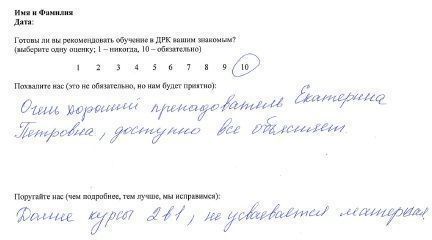 Имя и Фамилия
Дата:
Готовы ли вы рекомендовать обучение в ДРК вашим знакомым?
(выберите одну оценку; 1 – никогда, 10 – обязательно)
1 2 3 4 5 6 7 8 9 10
Похвалите нас (это не обязательно, но нам будет приятно):
Очень хороший преподаватель Екатерина
Петровна, доступно все объясняет.
Поругайте нас (чем подробнее, тем лучше, мы исправимся):
курсы 2в1, не усваевается материал